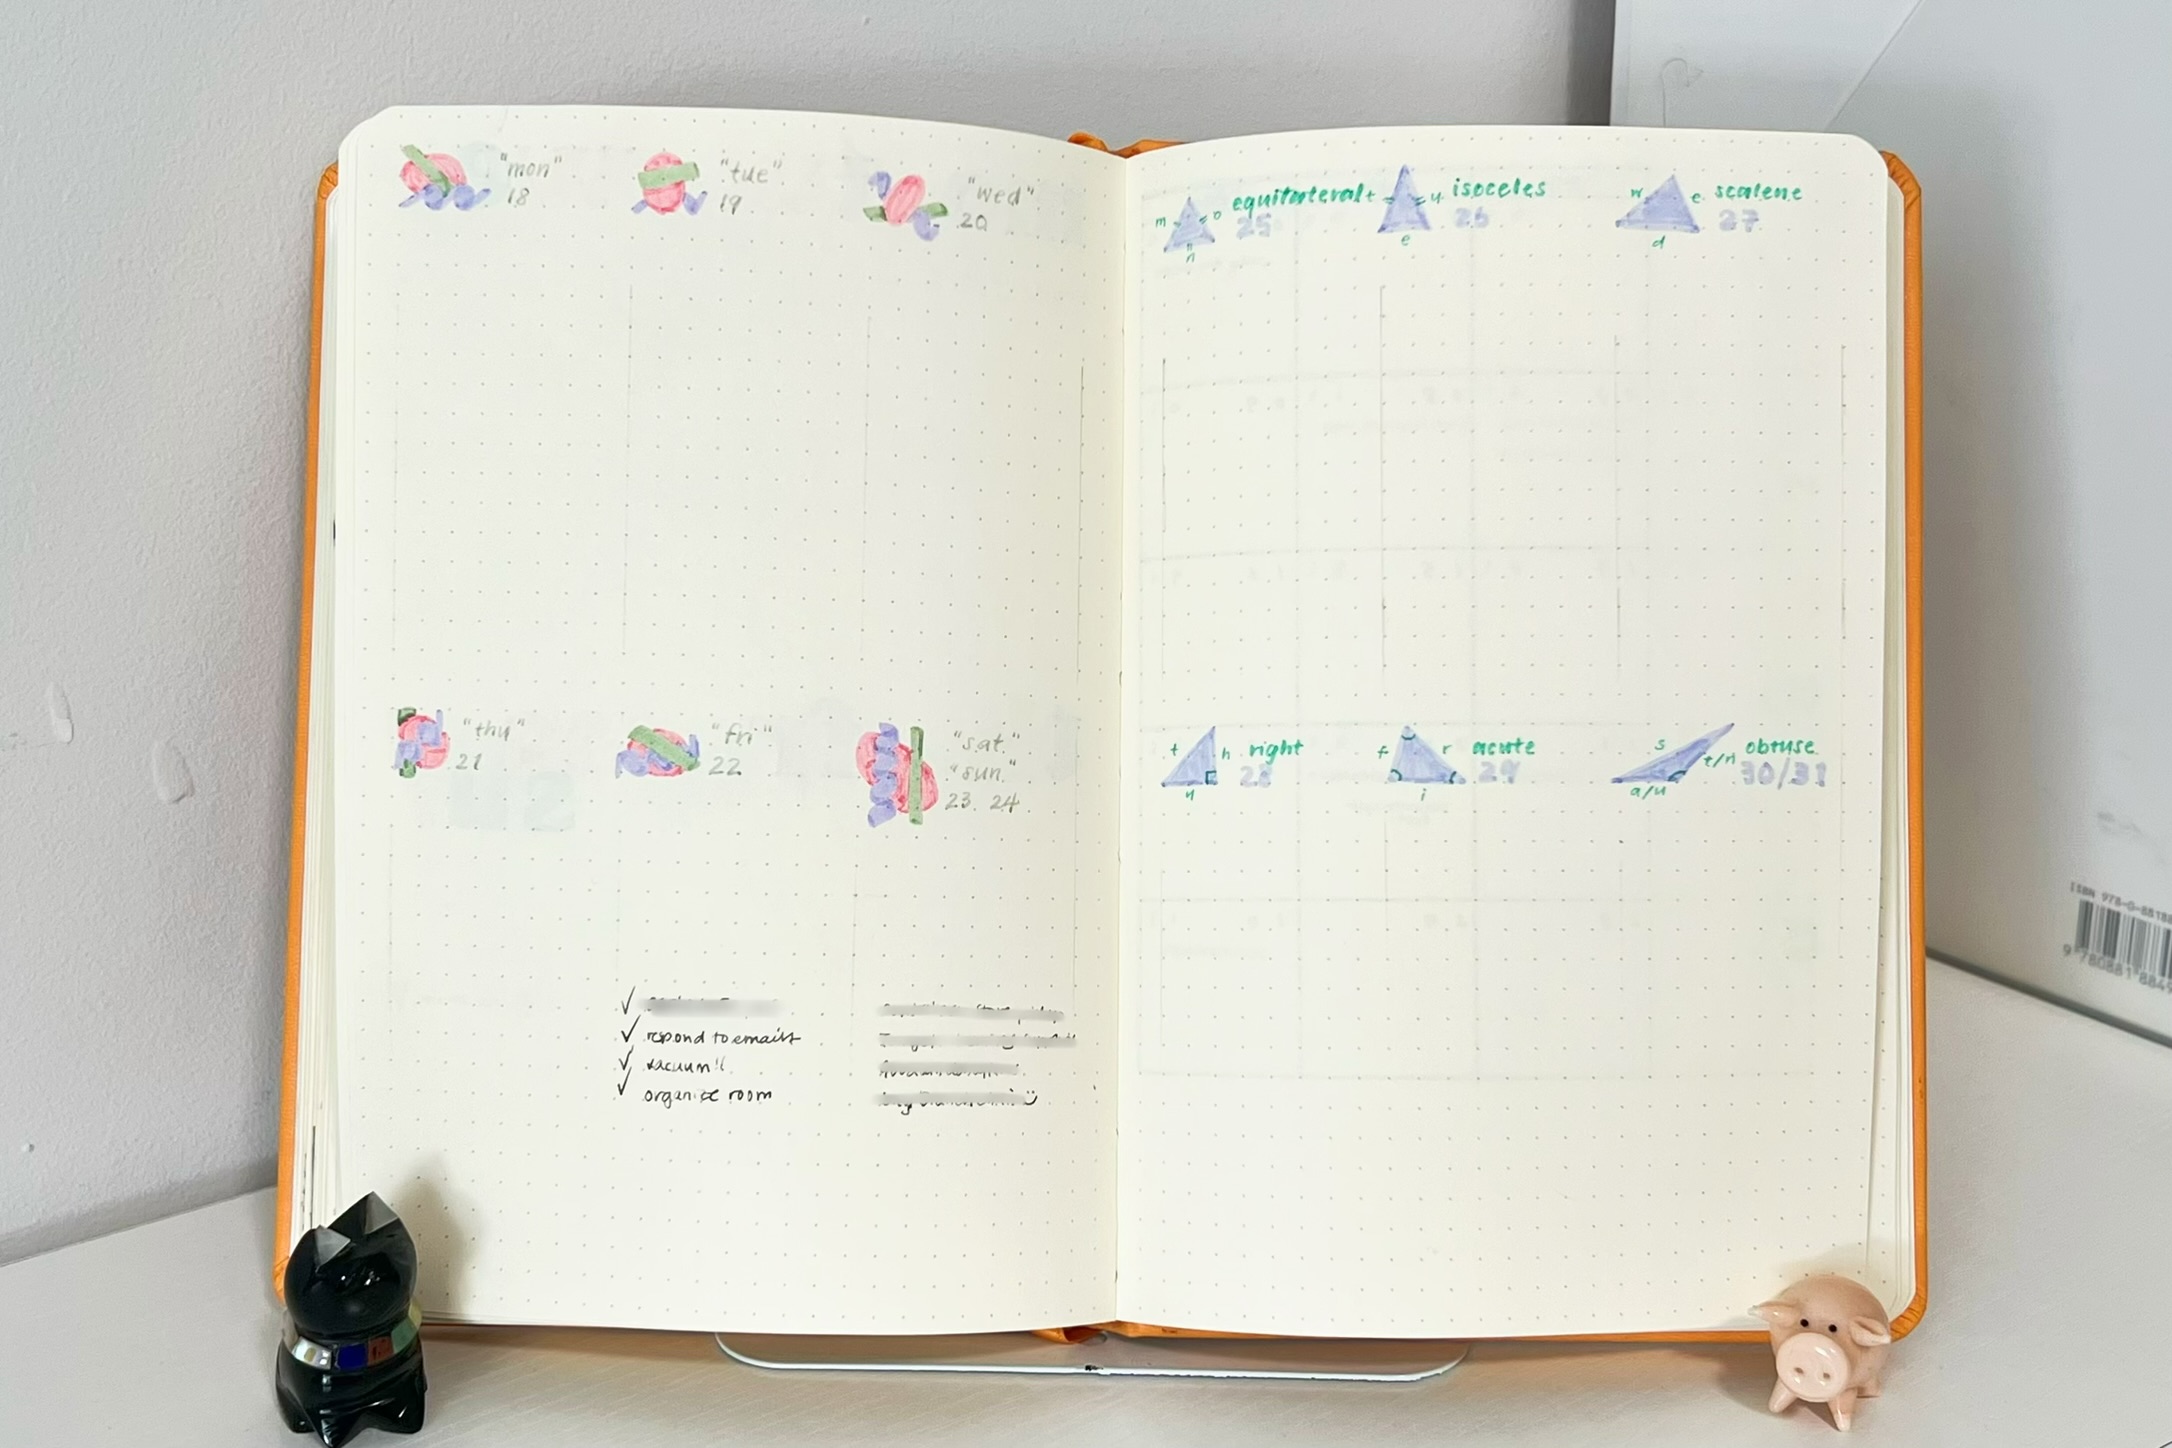 "mon"
18
"tue"
19
"wed"
20
"thu"
21
"fri"
22
"sat"
"sun"
23. 24
✓
✓ respond to emails
✓ vacuum!!
✓ organize room
m o n
equilateral
25
t u e
isoceles
26
w e d
scalene
27
t h u
right
28
f r i
acute
29
s t/n a/u
obtuse
30/31
ISBN 978-0-88188
9 780881 8849